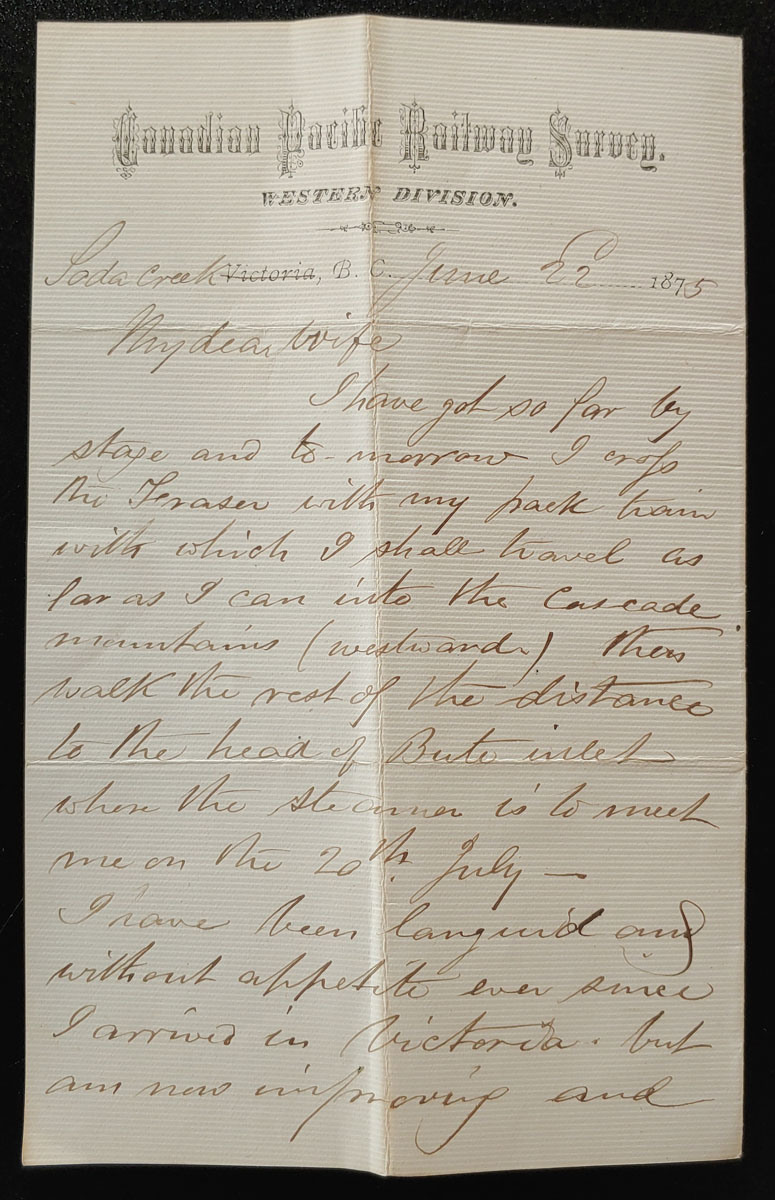 Canadian Pacific Railway Survey.
WESTERN DIVISION.
Soda Creek Victoria, B. C. June 22 1875
My dear Wife
I have got so far by
stage and to-morrow I cross
the Fraser with my pack train
with which I shall travel as
far as I can into the Cascade
mountains (westward) then
walk the rest of the distance
to the head of Bute inlet
where the steamer is to meet
me on the 20th. July —
I have been languid and
without appetite ever since
I arrived in Victoria. but
am now improving and